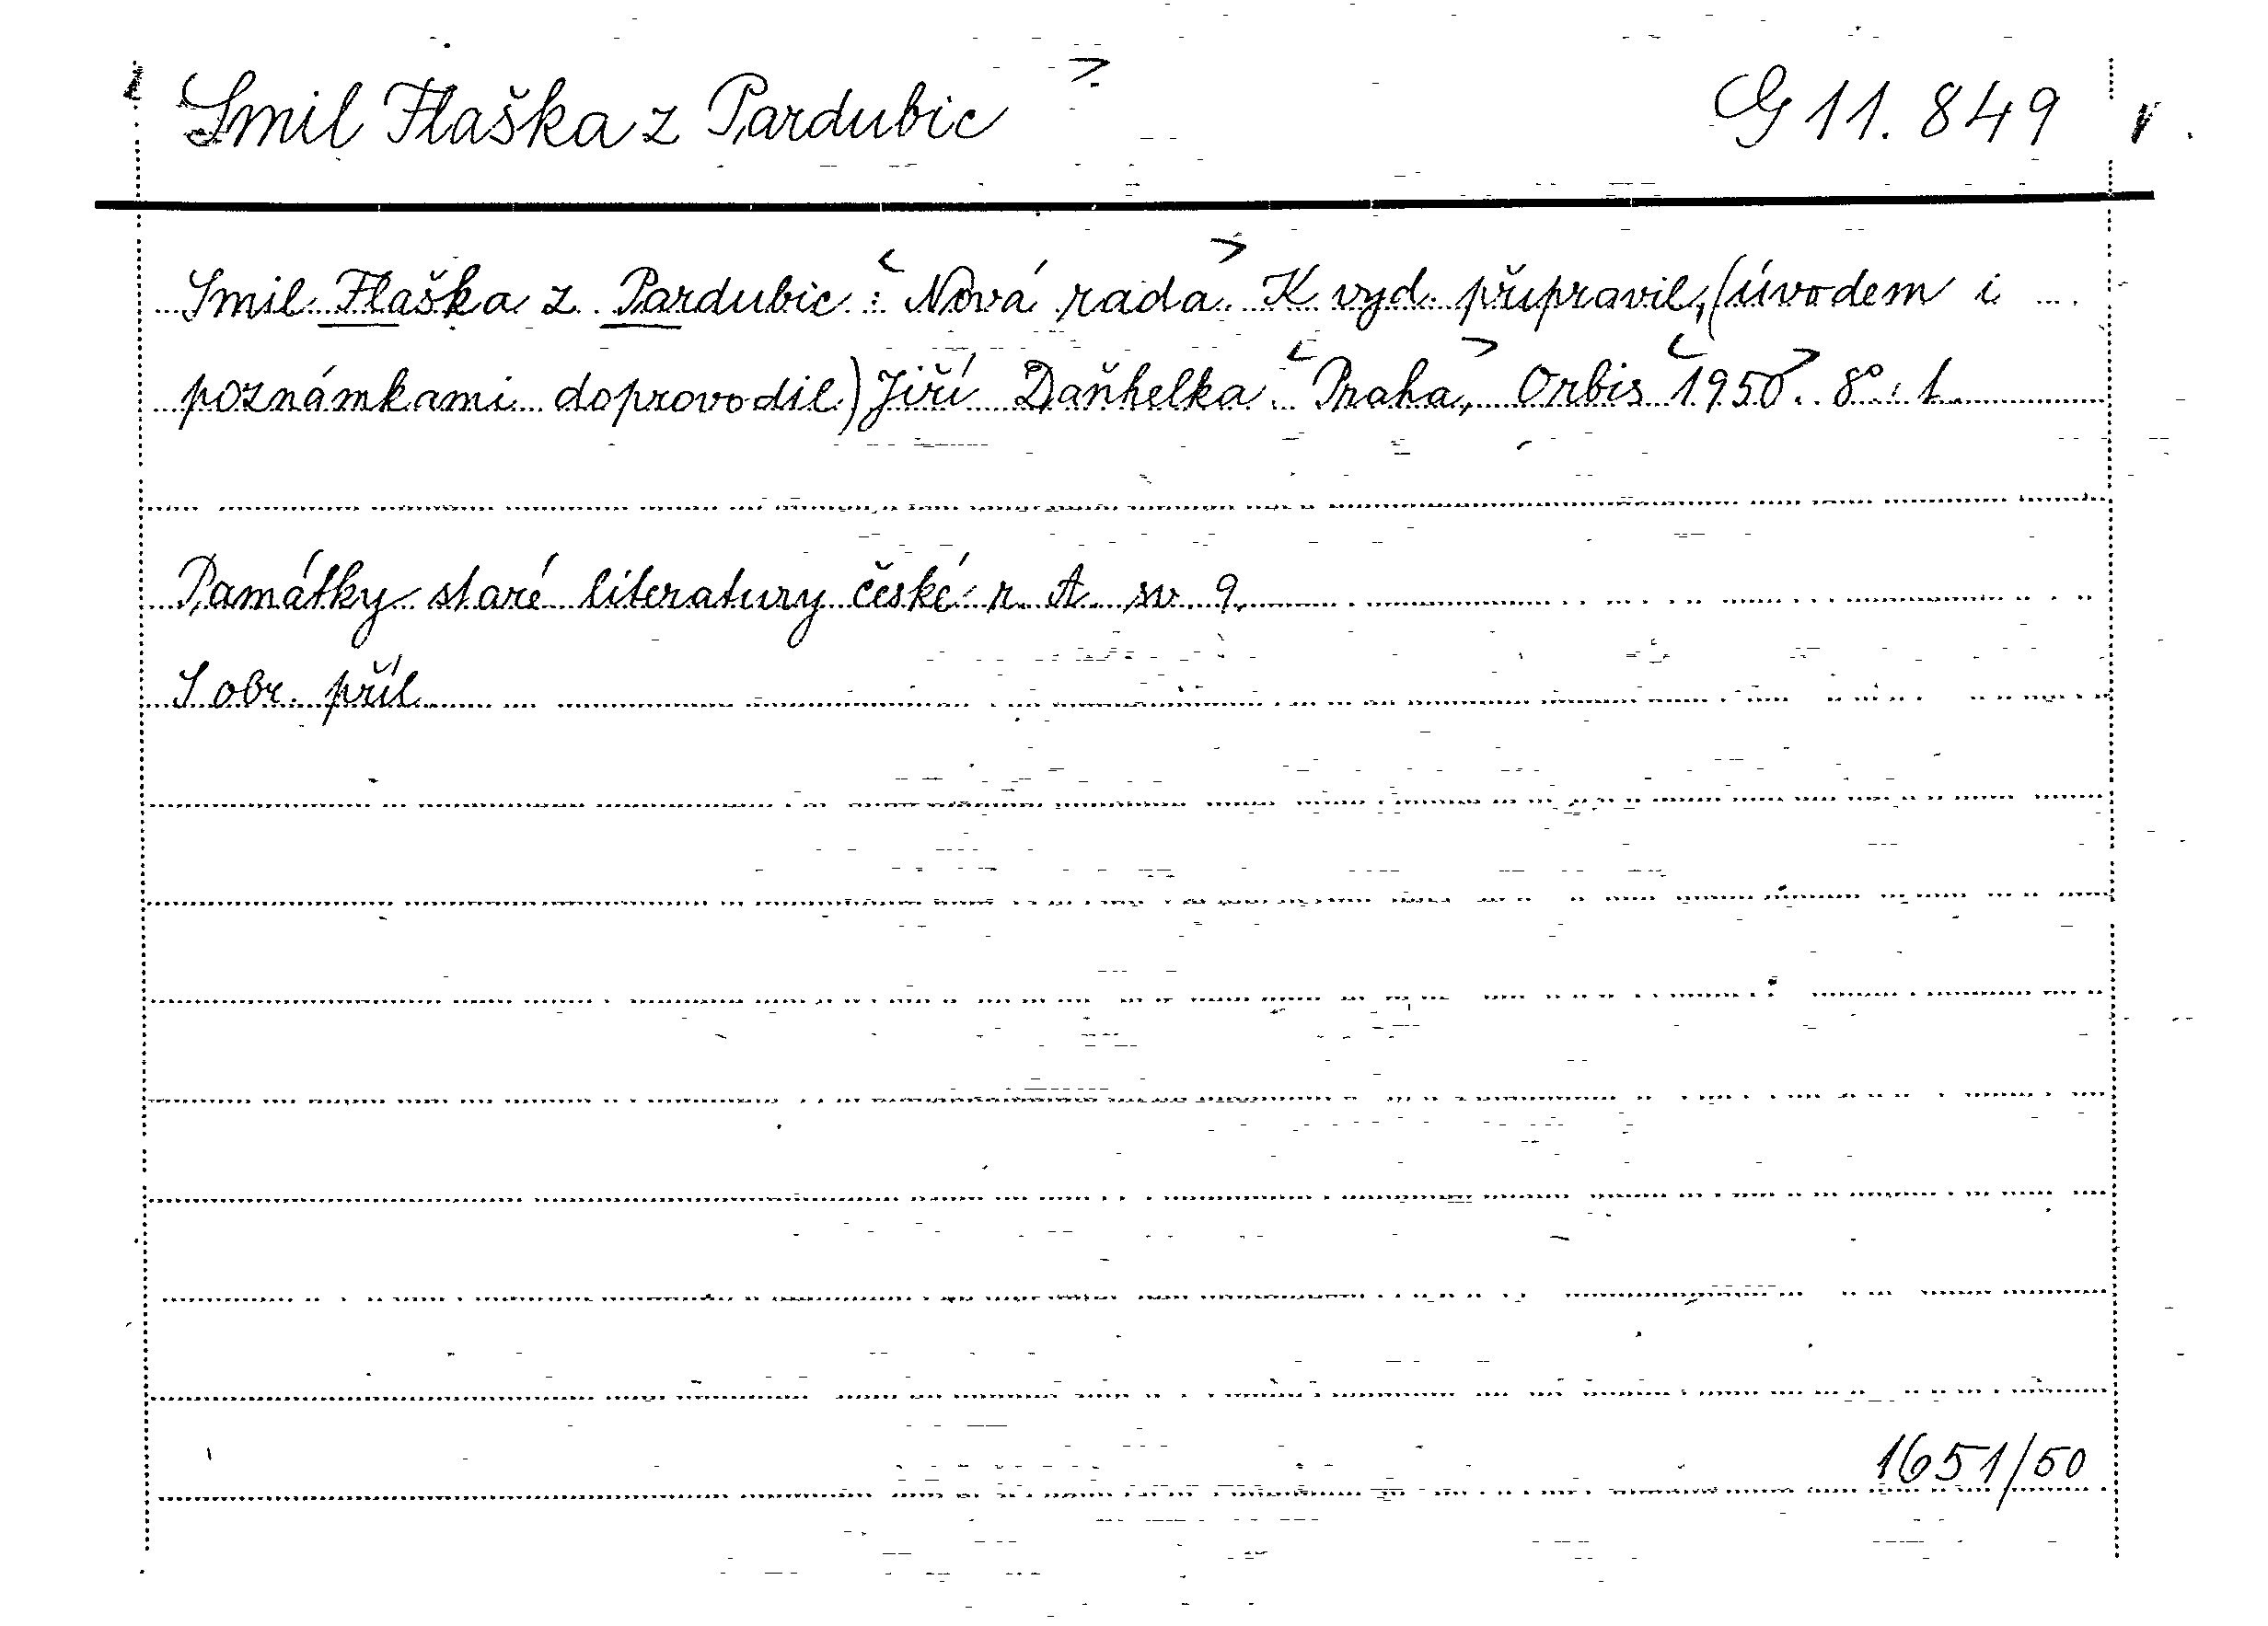 Smil Flaška z Pardubic G 11.849
Smil Flaška z Pardubic : Nová rada. K vyd. připravil, (úvodem i
poznámkami doprovodil) Jiří Daňhelka. Praha, Orbis 1950. 8°. 1.
Památky staré literatury české r. A sv 9.
S obr. příl.
1651/50